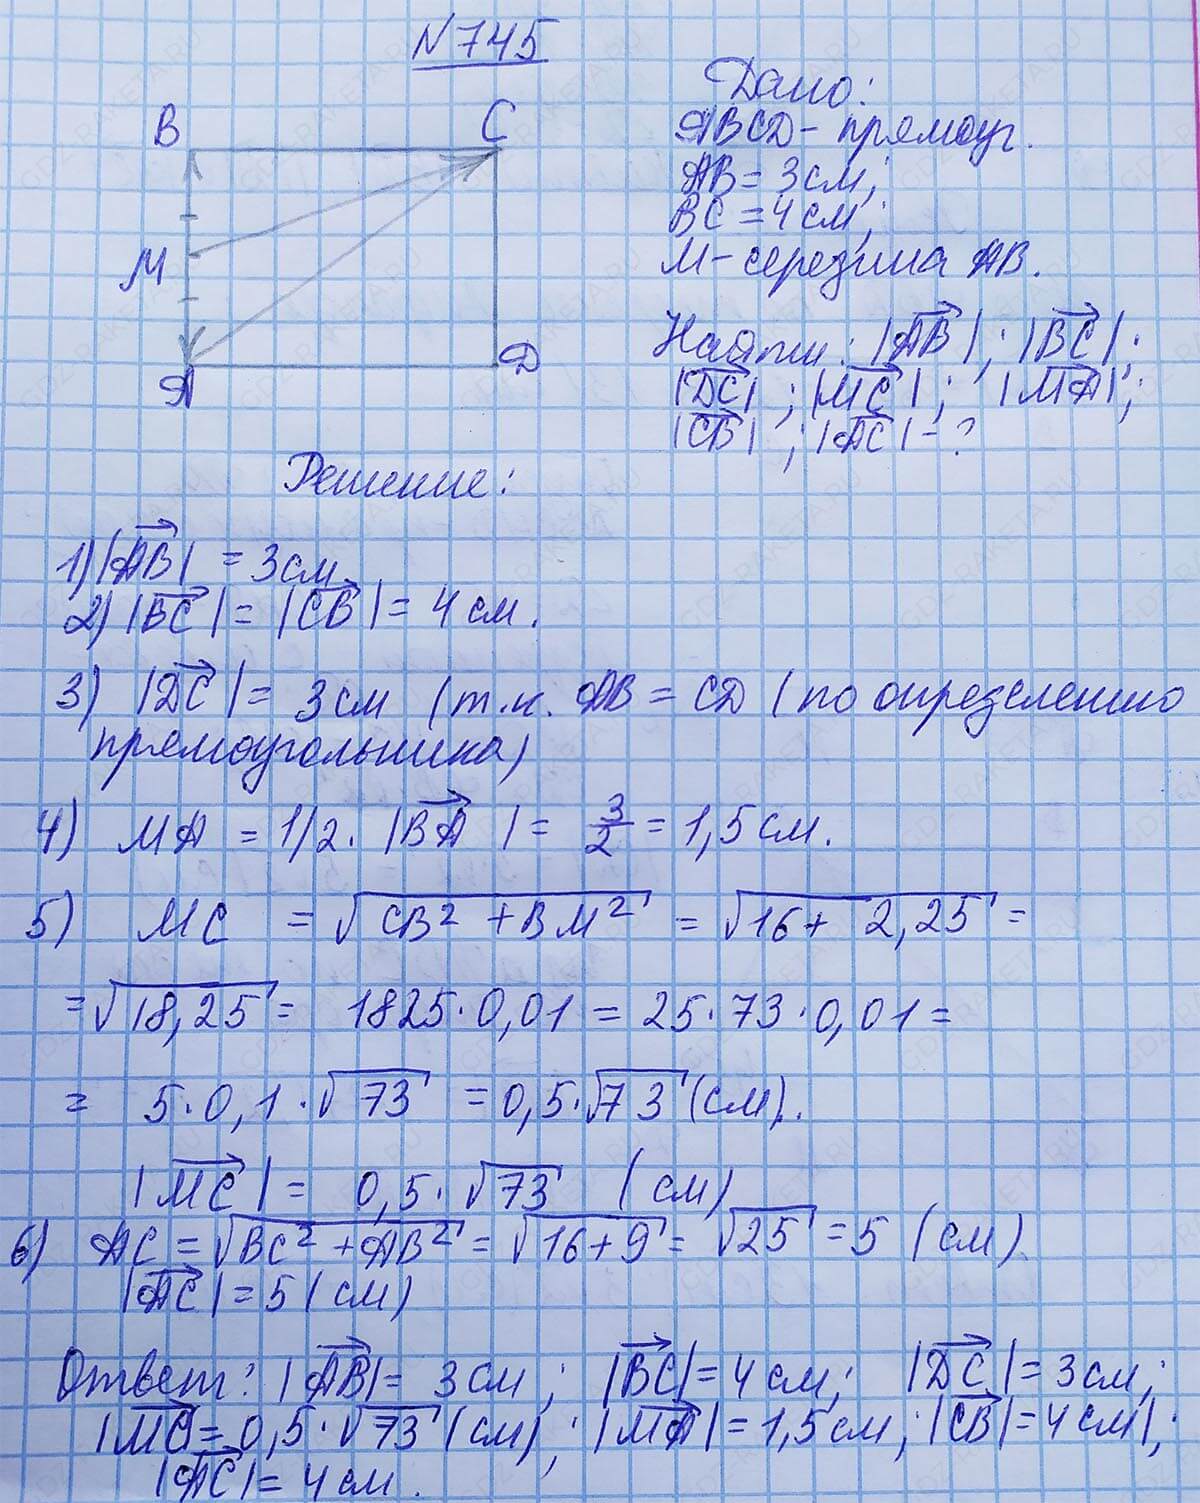 №745
B
C
M
A
D
Дано:
ABCD - прямоуг.
AB = 3 см;
BC = 4 см;
M - середина AB.
Найти: |AB|; |BC|;
|DC|; |MC|; |MA|;
|CB|; |AC| - ?
Решение:
1) |AB| = 3 см
2) |BC| = |CB| = 4 см.
3) |DC| = 3 см (т.к. AB = CD (по определению
прямоугольника)
4) MA = 1/2 · |BA| = 3/2 = 1,5 см.
5) MC = √CB² + BM² = √16 + 2,25 =
= √18,25 = 1825 · 0,01 = 25 · 73 · 0,01 =
= 5 · 0,1 · √73 = 0,5 · √73 (см).
|MC| = 0,5 · √73 (см)
6) AC = √BC² + AB² = √16 + 9 = √25 = 5 (см).
|AC| = 5 (см)
Ответ: |AB| = 3 см; |BC| = 4 см; |DC| = 3 см;
|MC| = 0,5 · √73 (см); |MA| = 1,5 см; |CB| = 4 см;
|AC| = 4 см.